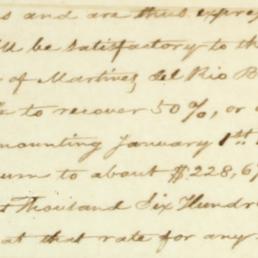 s and are thus expre
ll be satisfactory to th
of Martinez del Rio B
to recover 50%, or
mounting January 1st
um to about $228,6
Thousand Six Hundr
at that rate for any